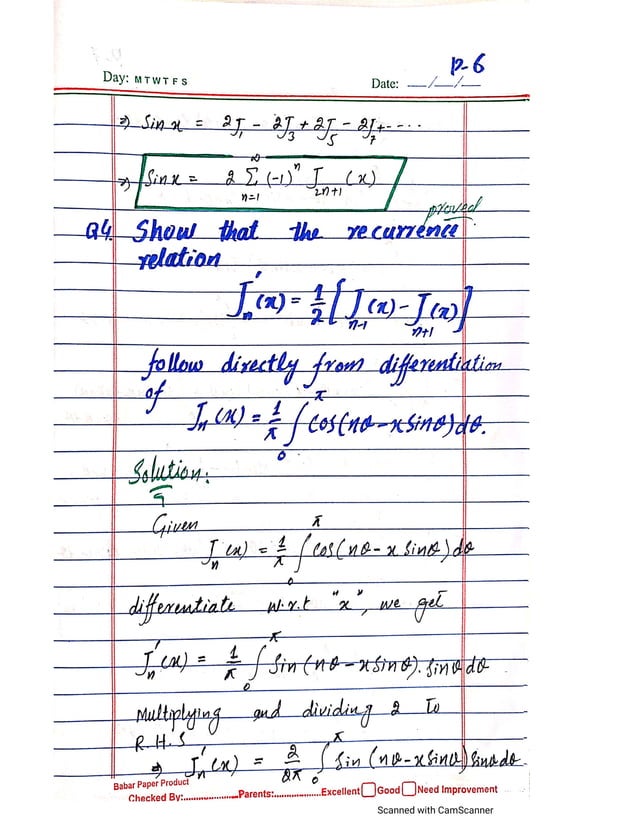 p-6
Day: M T W T F S Date: __/__/__
⇒ Sin x = 2J₁ - 2J₃ + 2J₅ - 2J₇ + - - ...
⇒ Sin x = 2 ∑_{n=1}^{∞} (-1)ⁿ J_{2n+1} (x)
proved
Q4. Show that the recurrence
relation
J'_n(x) = 1/2 [J_{n-1}(x) - J_{n+1}(x)]
follow directly from differentiation
of
J_n(x) = 1/π ∫_0^π cos(nθ - x sinθ) dθ.
Solution:
Given
J_n(x) = 1/π ∫_0^π cos(nθ - x sinθ) dθ
differentiate w.r.t "x", we get
J'_n(x) = 1/π ∫_0^π Sin(nθ - x sinθ). sinθ dθ
Multiplying and dividing 2 to
R.H.S
⇒ J'_n(x) = 2/2π ∫_0^π Sin(nθ - x sinθ) sinθ dθ
Babar Paper Product
Checked By:..................Parents:..................Excellent Good Need Improvement
Scanned with CamScanner